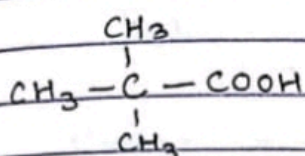 CH3
CH3 - C - COOH
CH3